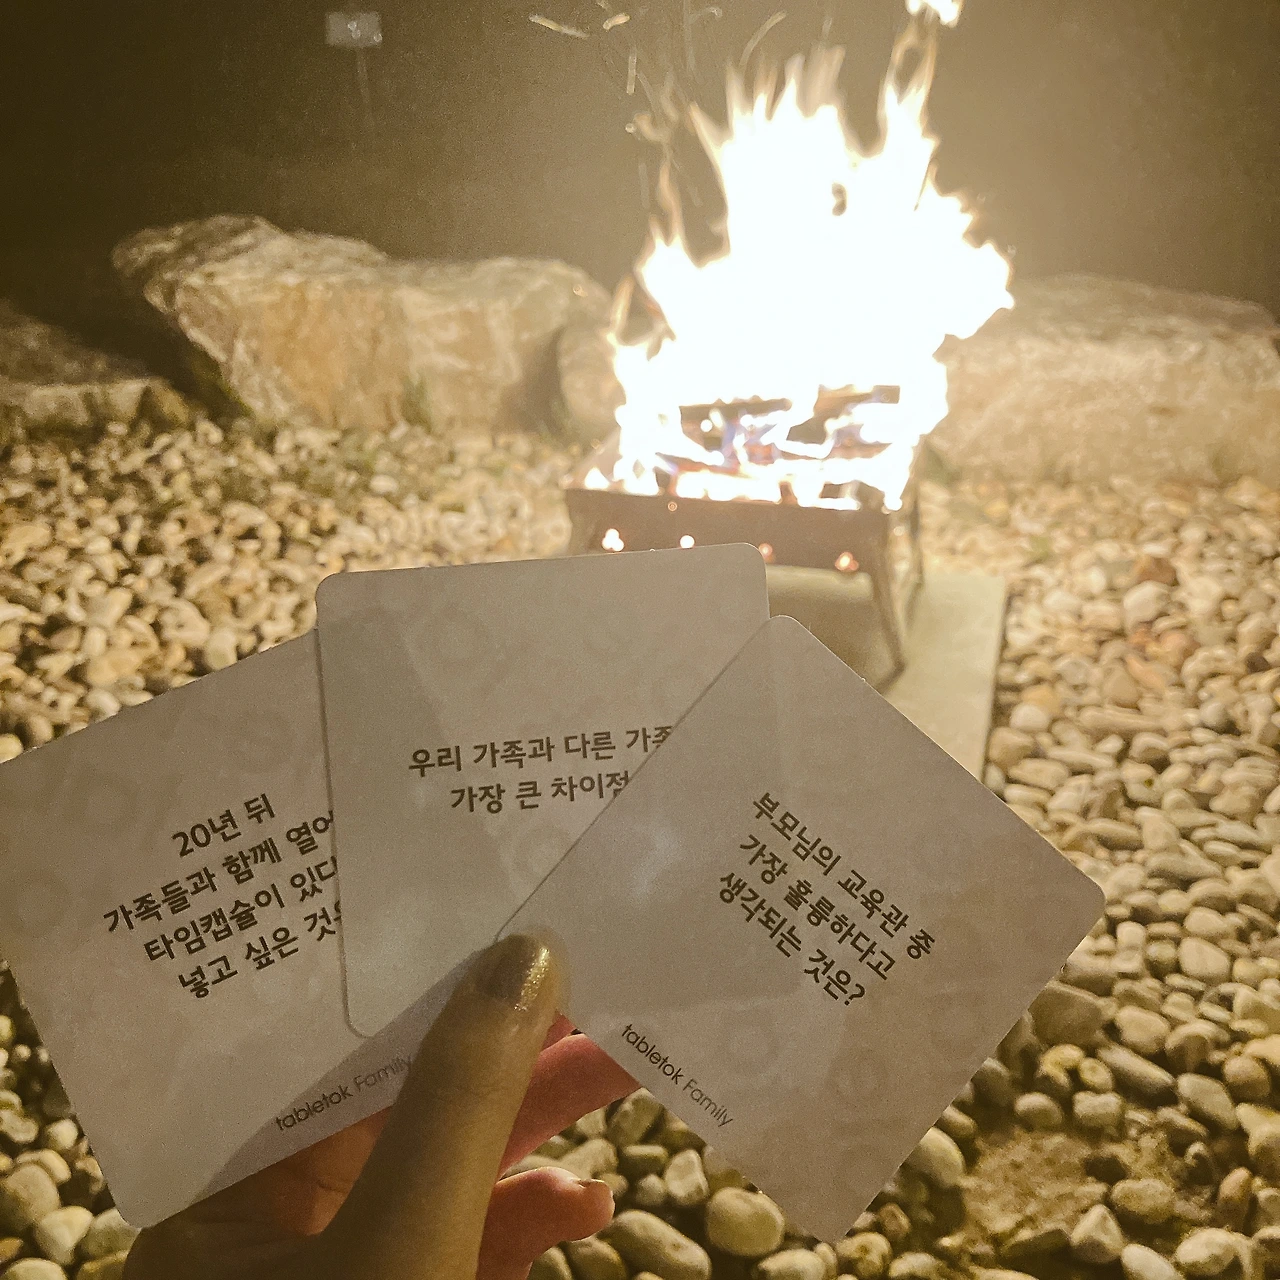 20년 뒤
가족들과 함께
타임캡슐이
넣고 싶은
tabletok Family
우리 가족과 다른
가장 큰
부모님의 교육관 중
가장 훌륭하다고
생각되는 것은?
tabletok Family